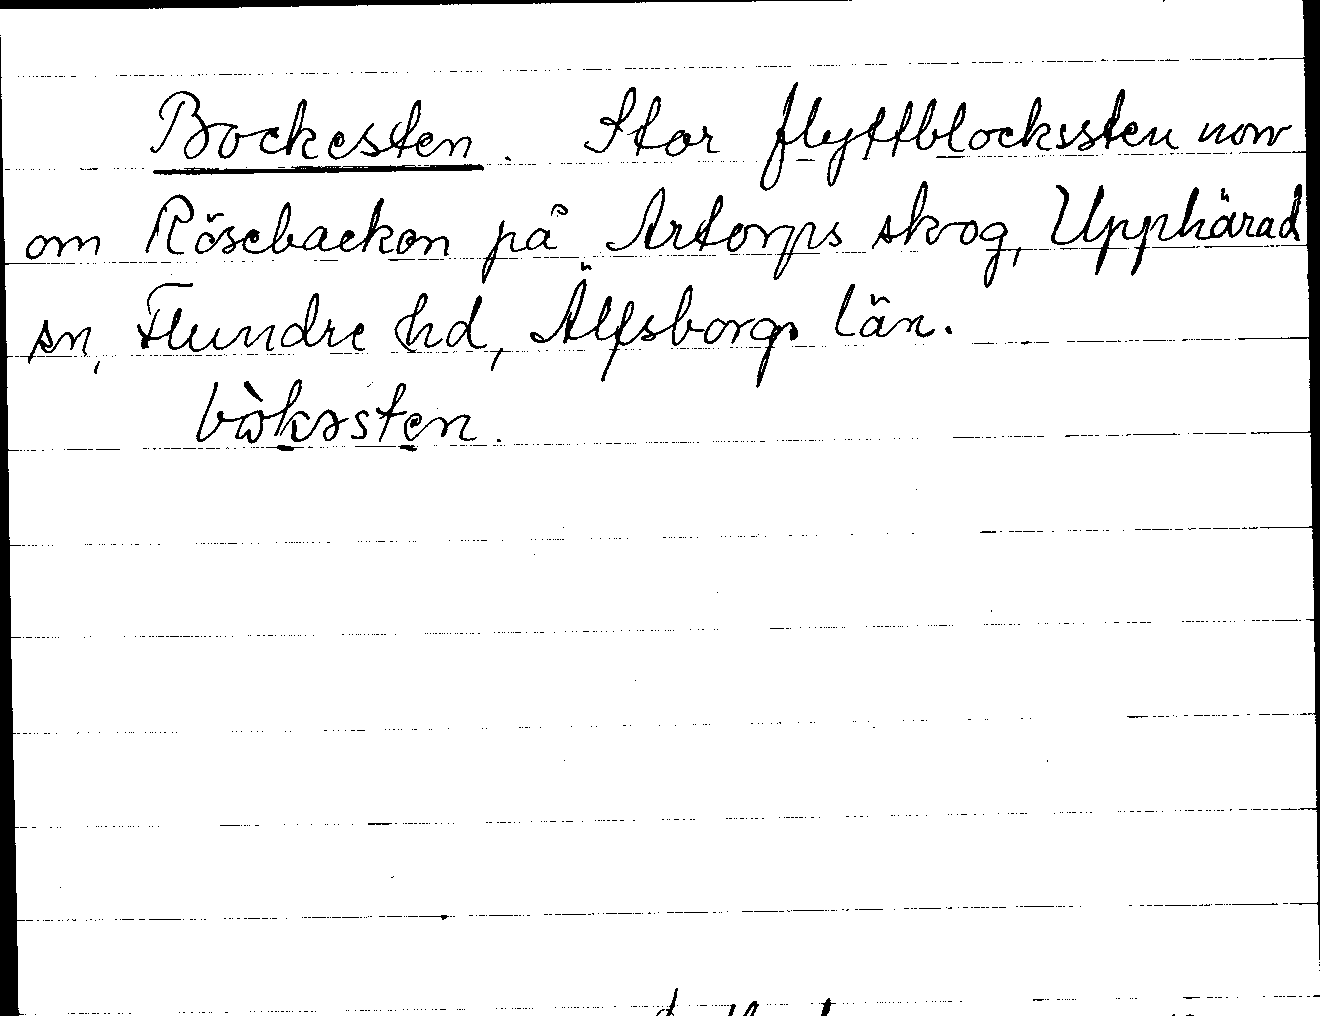 Bockesten. Stor flyttblockssten norr
om Rösebacken på Artorps skog, Upphärad
sn, Flundre hd, Älfsborgs län.